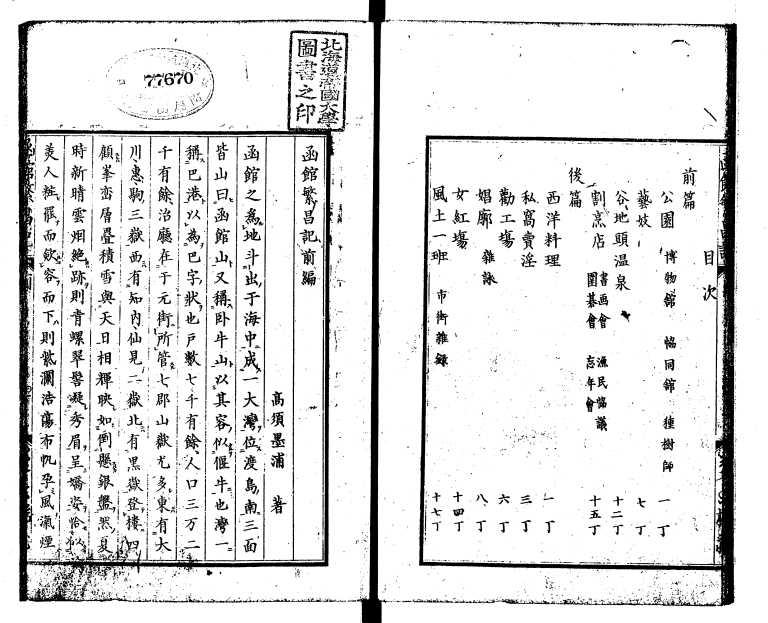 目次
前篇
公園 博物館 協同館 種樹師 一丁
藝妓 七丁
谷地頭温泉 十二丁
割烹店 書画會 漁民協議 圍碁會 忘年會 十五丁
後篇
西洋料理 一丁
私窩賣淫 三丁
勸工塲 六丁
娼廓 雜詠 八丁
女紅塲 十四丁
風土一班 市街雜録 十七丁
北海道帝國大學
圖書之印
77670
函館繁昌記前編
高須墨浦 著
函館之爲地斗出于海中成一大灣位渡島南三面
皆山曰函館山又稱卧牛山以其容似偃牛也灣一
稱巴港以爲巴字狀也戸數七千有餘人口三万二
千有餘治廳在于元街所管七郡山嶽尤多東有大
川惠駒三嶽西有知内仙見二嶽北有黒嶽登樓四
顧峯巒層疊積雪與天日相輝映如倒懸銀盤然夏
時新晴雲烟絶跡則青螺翠髻凝秀眉呈嬌姿恰似
美人粧罷而斂容而下則紫瀾浩蕩布帆孕風瀛煙